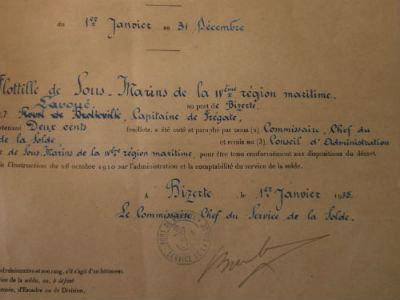 du 1er Janvier au 31 Décembre
Flottille de Sous-Marins de la IVème région maritime.
Lavoué, au port de Bizerte,
Capitaine de Frégate,
Deux cents feuillets, a été coté et paraphé par nous (2) Commissaire, Chef du
de la Solde et remis au (3) Conseil d'Administration
de Sous-Marins de la IVme région maritime, pour être tenu conformément aux dispositions du décret
l'Instruction du 28 octobre 1910 sur l'administration et la comptabilité du service de la solde.
A Bizerte le 1er Janvier 1938.
Le Commissaire Chef du Service de la Solde.
et son rang, s'il s'agit d'un bâtiment.
de la solde, ou, à défaut
d'Escadre ou de Division.